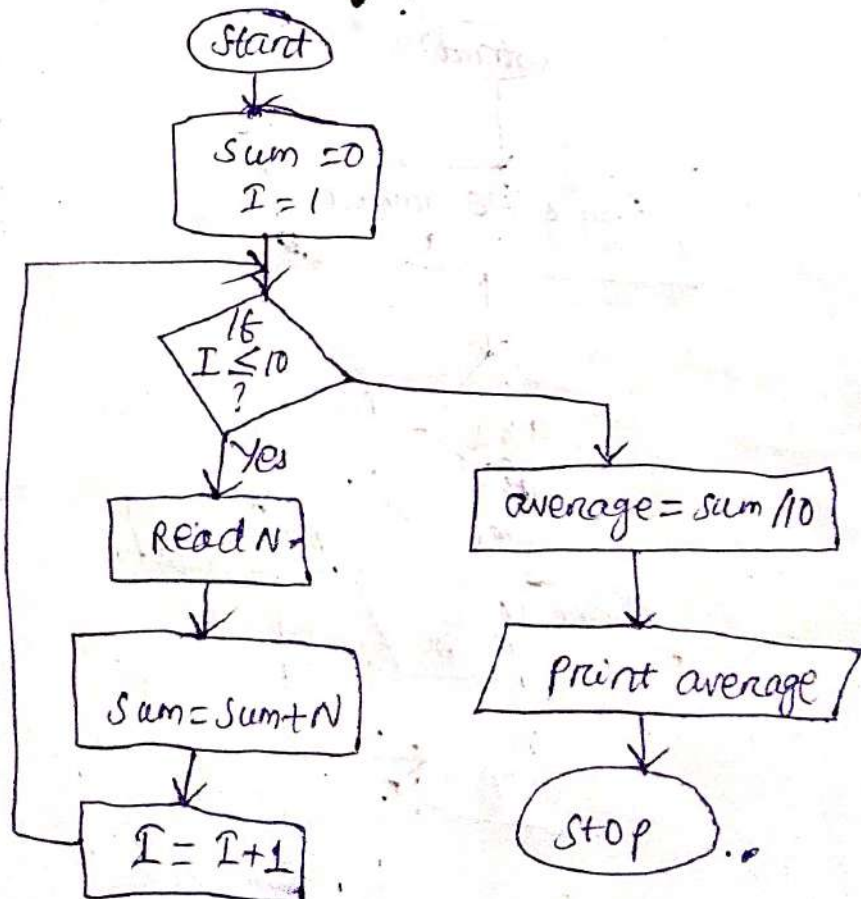 Start
Sum = 0
I = 1
If
I ≤ 10
?
Yes
Read N
Sum = Sum + N
I = I + 1
average = sum / 10
Print average
Stop